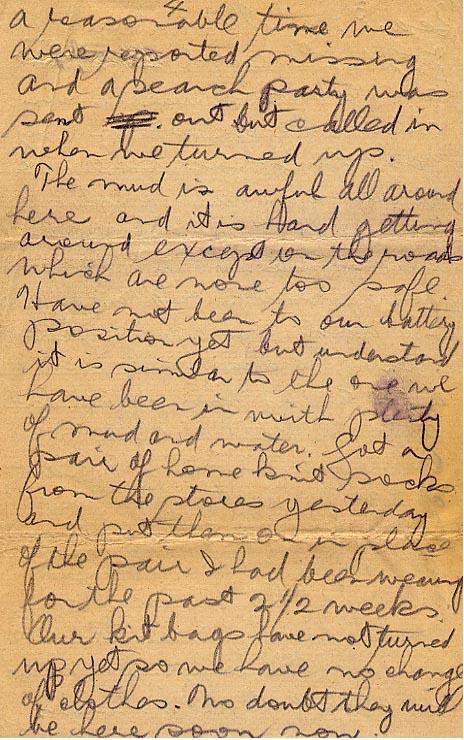 4
a reasonable time we
were reported missing
and a search party was
sent out but called in
when we turned up.
The mud is awful all around
here and it is hard getting
around except on the roads
which are none too safe.
Have not been to our battery
position yet but understand
it is similar to the one we
have been in with plenty
of mud and water. Got a
pair of home knit socks
from the stores yesterday
and put them on in place
of the pair I had been wearing
for the past 2 1/2 weeks.
Our kit bags have not turned
up yet so we have no change
of clothes. No doubt they will
be here soon now.